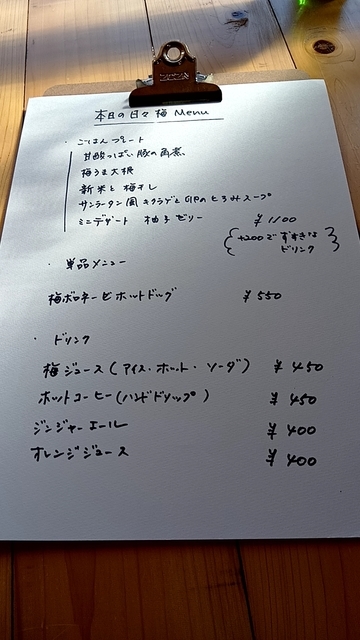 本日の日々梅 Menu
・ごはんプレート
甘酸っぱい豚の角煮
梅うま大根
新米と梅干し
サンラータン風 キクラゲと のとろみスープ
ミニデザート 柚子ゼリー ¥1100
(+200で すきな
ドリンク)
・単品メニュー
梅ボロネーゼホットドッグ ¥550
・ドリンク
梅ジュース(アイス・ホット・ソーダ) ¥450
ホットコーヒー(ハンドドリップ) ¥450
ジンジャーエール ¥400
オレンジジュース ¥400